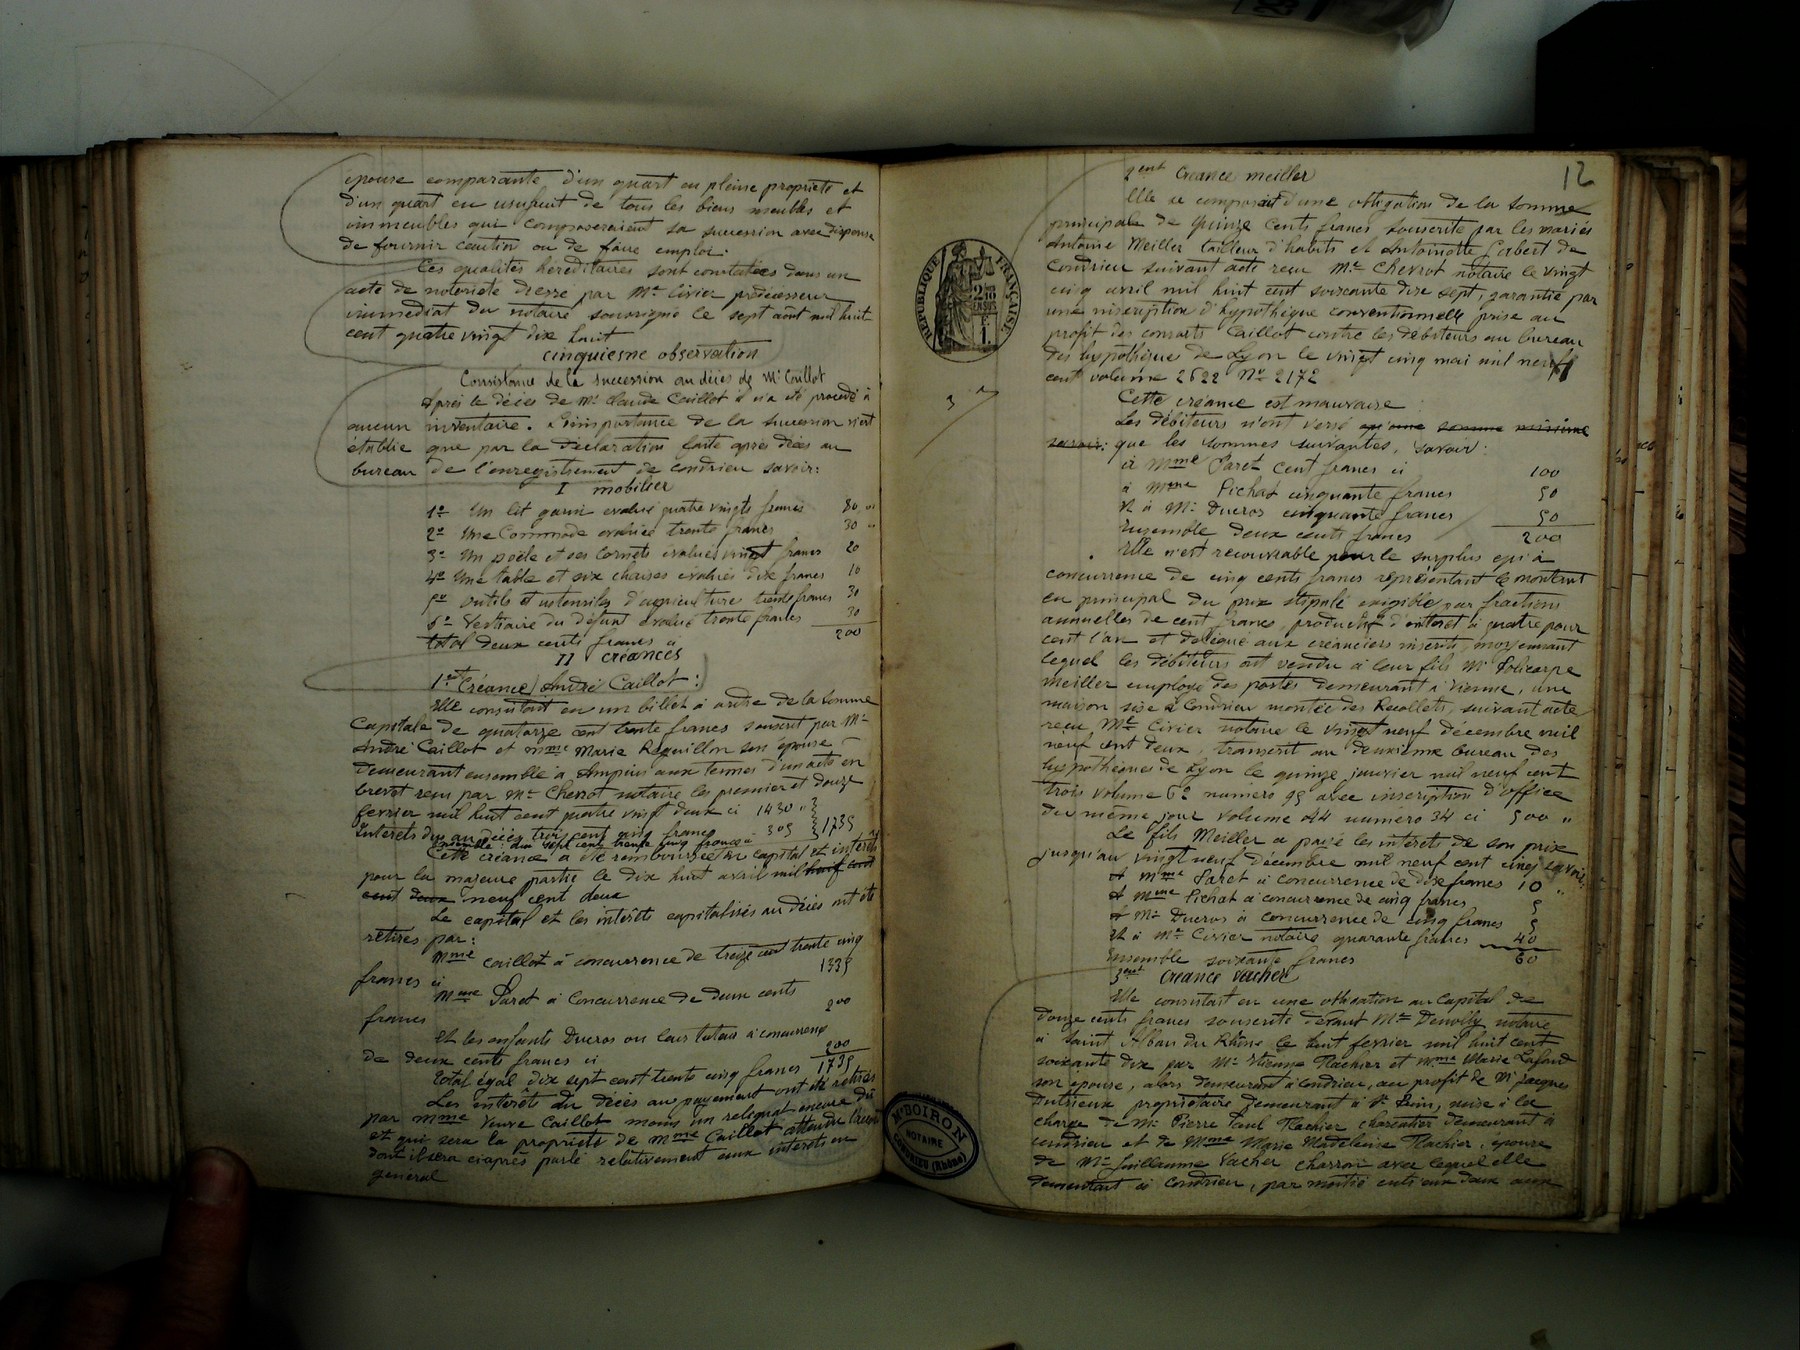 épouse comparante d'un quart en pleine propriété et
d'un quart en usufruit de tous les biens meubles et
immeubles qui composeraient sa succession avec dispense
de fournir caution ou de faire emploi.
Ces qualités héréditaires sont constatées dans un
acte de notoriété dressé par Me Civier prédécesseur
immédiat du notaire soussigné le sept août mil huit
cent quatre vingt dix huit
cinquiesne observation
Consistance de la succession au décès de Mr Caillot
Après le décès de Mr Claude Caillot il n'a été procédé à
aucun inventaire. L'importance de la succession n'est
établie que par la déclaration faite après décès au
bureau de l'enregistrement de Condrieu savoir:
I mobilier
1º Un lit garni évalué quatre vingts francs 80 "
2º Une Commode évaluée trente francs 30 "
3º Un poële et ses cornets évalués vingt francs 20
4º Une table et six chaises évaluées dix francs 10
5º Outils et ustensiles d'agriculture trente francs 30
6º Vestiaire du défunt évalué trente francs 30
total deux cents francs ci 200
II créances
1ent Créance André Caillot :
Elle consistait en un billet à ordre de la somme
Capitale de quatorze cent trente francs souscrit par Mr
André Caillot et Mme Marie Reguillon son épouse
demeurant ensemble à Ampuis aux termes d'un acte en
brevet reçu par Me Chevrot notaire les premier et douze
février mil huit cent quatre vingt deux ci 1430 "
Intérêts dus au décès trois cent cinq francs 305 } 1735
Ensemble: dix sept cents trente cinq francs
Cette créance a été remboursée en capital et intérêts
pour la majeure partie le dix huit avril mil huit cent
cent deux neuf cent deux
Le capital et les intérêts capitalisés au décès ont été
retirés par:
Mme Caillot à concurrence de treize cent trente cinq
francs ci 1335
Mme Paret à concurrence de deux cents
francs 200
Et les enfants Ducros ou leur tuteur à concurrence
de deux cents francs ci 200
Total égal dix sept cent trente cinq francs 1735
Les intérêts du décès au payement ont été retirés
par Mme Veuve Caillot moins un reliquat encore dû
et qui sera la propriété de Mme Caillot attendu l'accord
dont il sera ciaprès parlé relativement aux intérêts en
général
12
2ent Créance Meiller
Elle se composait d'une obligation de la somme
principale de quinze cents francs souscrite par les mariés
Antoine Meiller tailleur d'habits et Antoinette Gabert de
Condrieu suivant acte reçu Me Chevrot notaire le vingt
cinq avril mil huit cent soixante dix sept, garantie par
une inscription d'hypothèque conventionnelle prise au
profit des consorts Caillot contre les débiteurs au bureau
des hypothèques de Lyon le vingt cinq mai mil neuf
cent volume 2622 No 2172
Cette créance est mauvaise
Les débiteurs n'ont versé qu'une somme minime
savoir: que les sommes suivantes, savoir:
à Mme Paret cent francs ci 100
à Mme Pichat cinquante francs 50
et à Mr Ducros cinquante francs 50
Ensemble deux cents francs 200
Elle n'est recouvrable pour le surplus qu'à
concurrence de cinq cents francs représentant le montant
en principal du prix stipulé exigible par fractions
annuelles de cent francs, productif d'intérêt à quatre pour
cent l'an et délégué aux créanciers inscrits, moyennant
lequel les débiteurs ont vendu à leur fils Mr Policarpe
Meiller employé des postes demeurant à Vienne, une
maison sise à Condrieu montée des Recollets, suivant acte
reçu Me Civier notaire le vingt neuf décembre mil
neuf cent deux, transcrit au deuxième bureau des
hypothèques de Lyon le quinze janvier mil neuf cent
trois volume 62 numéro 95 avec inscription d'office
du même jour volume 44 numéro 34 ci 500 "
Le fils Meiller a payé les intérêts de son prix
jusqu'au vingt neuf décembre mil neuf cent cinq savoir:
A Mme Paret à concurrence de dix francs 10 "
A Mme Pichat à concurrence de cinq francs 5
A Mr Ducros à concurrence de cinq francs 5
Et à Me Civier notaire quarante francs 40
Ensemble soixante francs 60
3ent Créance Vacher
Elle consistait en une obligation au capital de
douze cents francs souscrite devant Me Denolly notaire
à Saint Alban du Rhône le huit février mil huit cent
soixante dix par Mr Etienne Flachier et Mme Marie Lafond
son épouse, alors demeurant à Condrieu, au profit de Mr Jacques
Dutrieux propriétaire demeurant à St mise à la
charge de Mr Pierre Paul Flachier charcutier demeurant à
Condrieu et de Mme Marie Madeleine Flachier, épouse
de Mr Guillaume Vacher charron avec lequel elle
demeurant à Condrieu, par moitié entr'eux deux aux
RÉPUBLIQUE FRANÇAISE
Me BOIRON
NOTAIRE
CONDRIEU (Rhône)